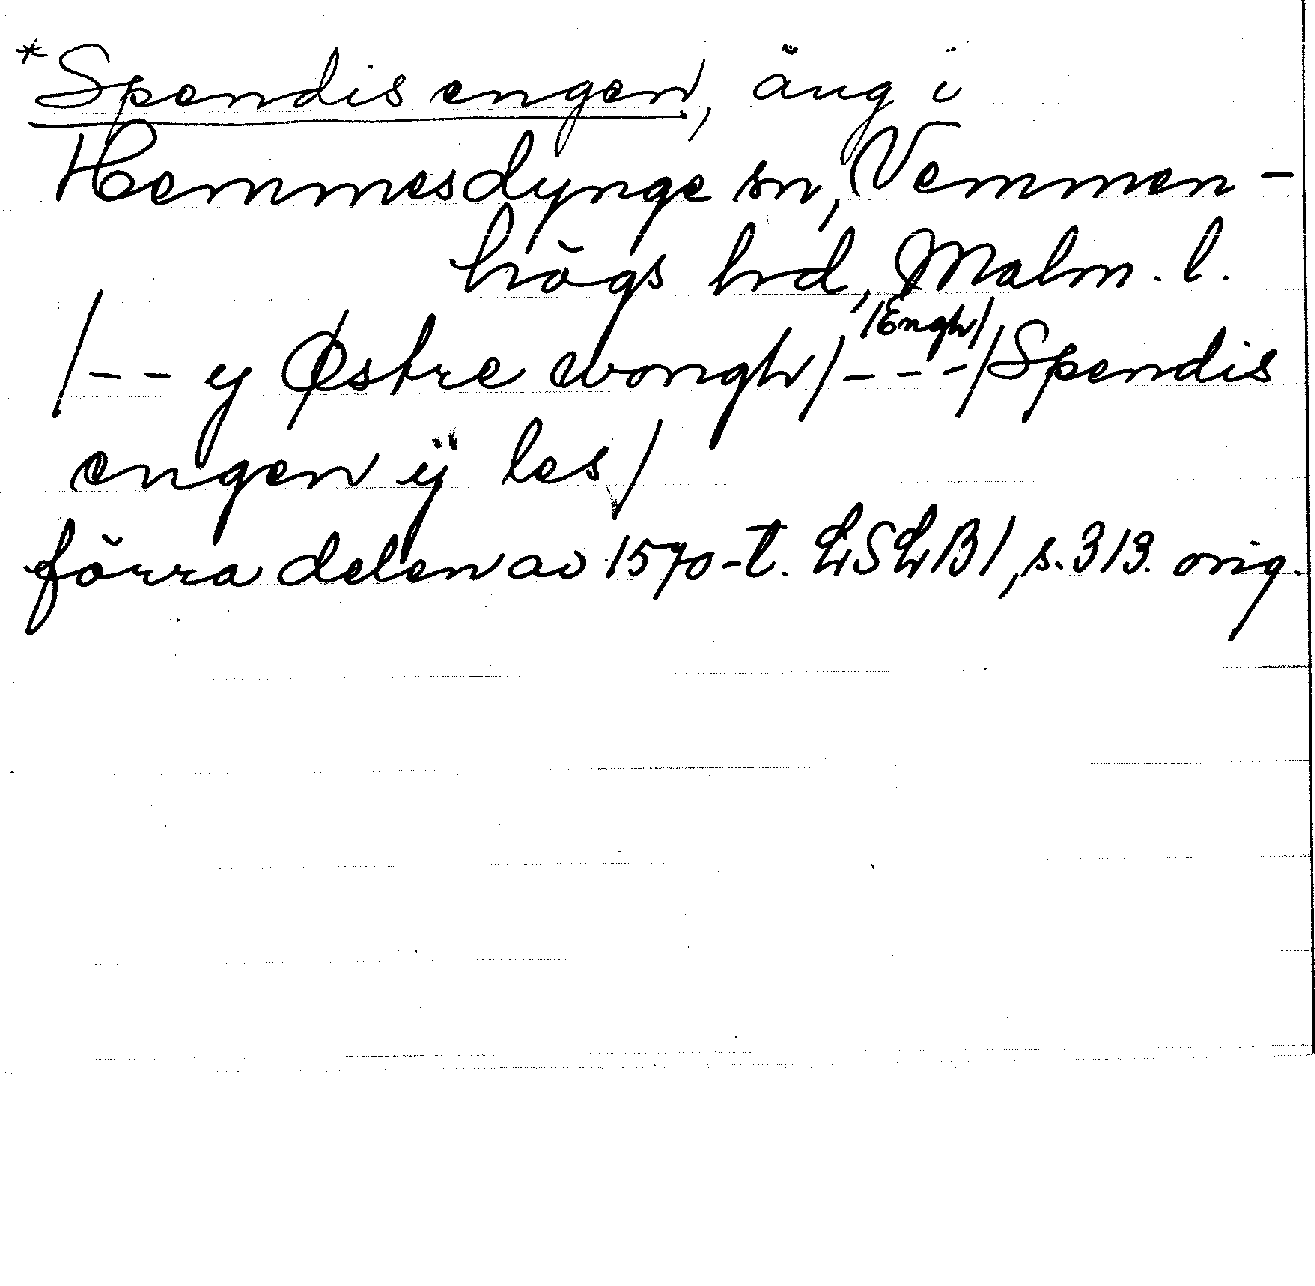 *Spendis engen, äng i
Hemmesdynge sn, Vemmen-
högs hrd, Malm. l.
/-- y Østre wongh/ --- /Engh/ /Spendis
engen ÿ les/
förra delen av 1570-t. LSLB1, s. 313. orig.